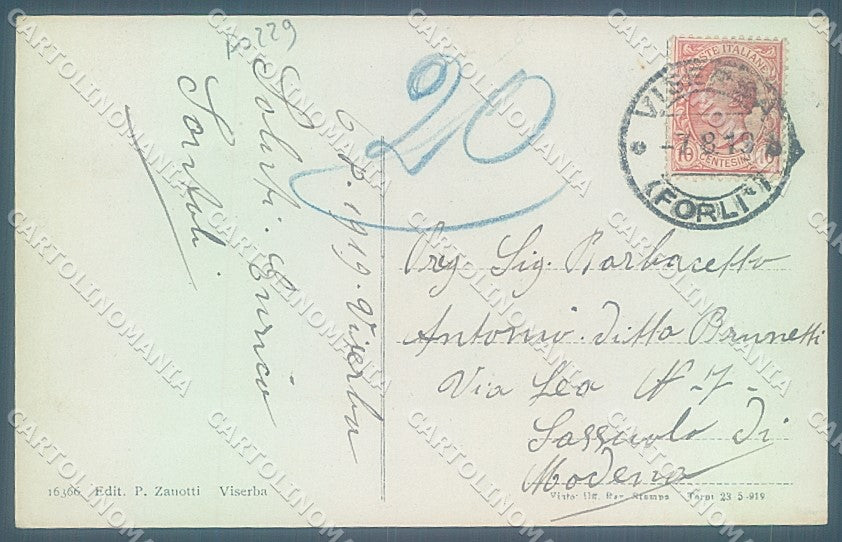 229
6/8. 1919. Viserba
Saluti. Enrico
20
POSTE ITALIANE
10 CENTESIMI 10
VISERBA
-7.8.19
(FORLI')
Preg. Sig. Barbacetto
Antonio. ditta Brunetti
Via Lea N-7-
Sassuolo di
Modena
16366 Edit. P. Zanotti Viserba
Visto: Uff. Rev. Stampa Terni 23-5-919
CARTOLINOMANIA